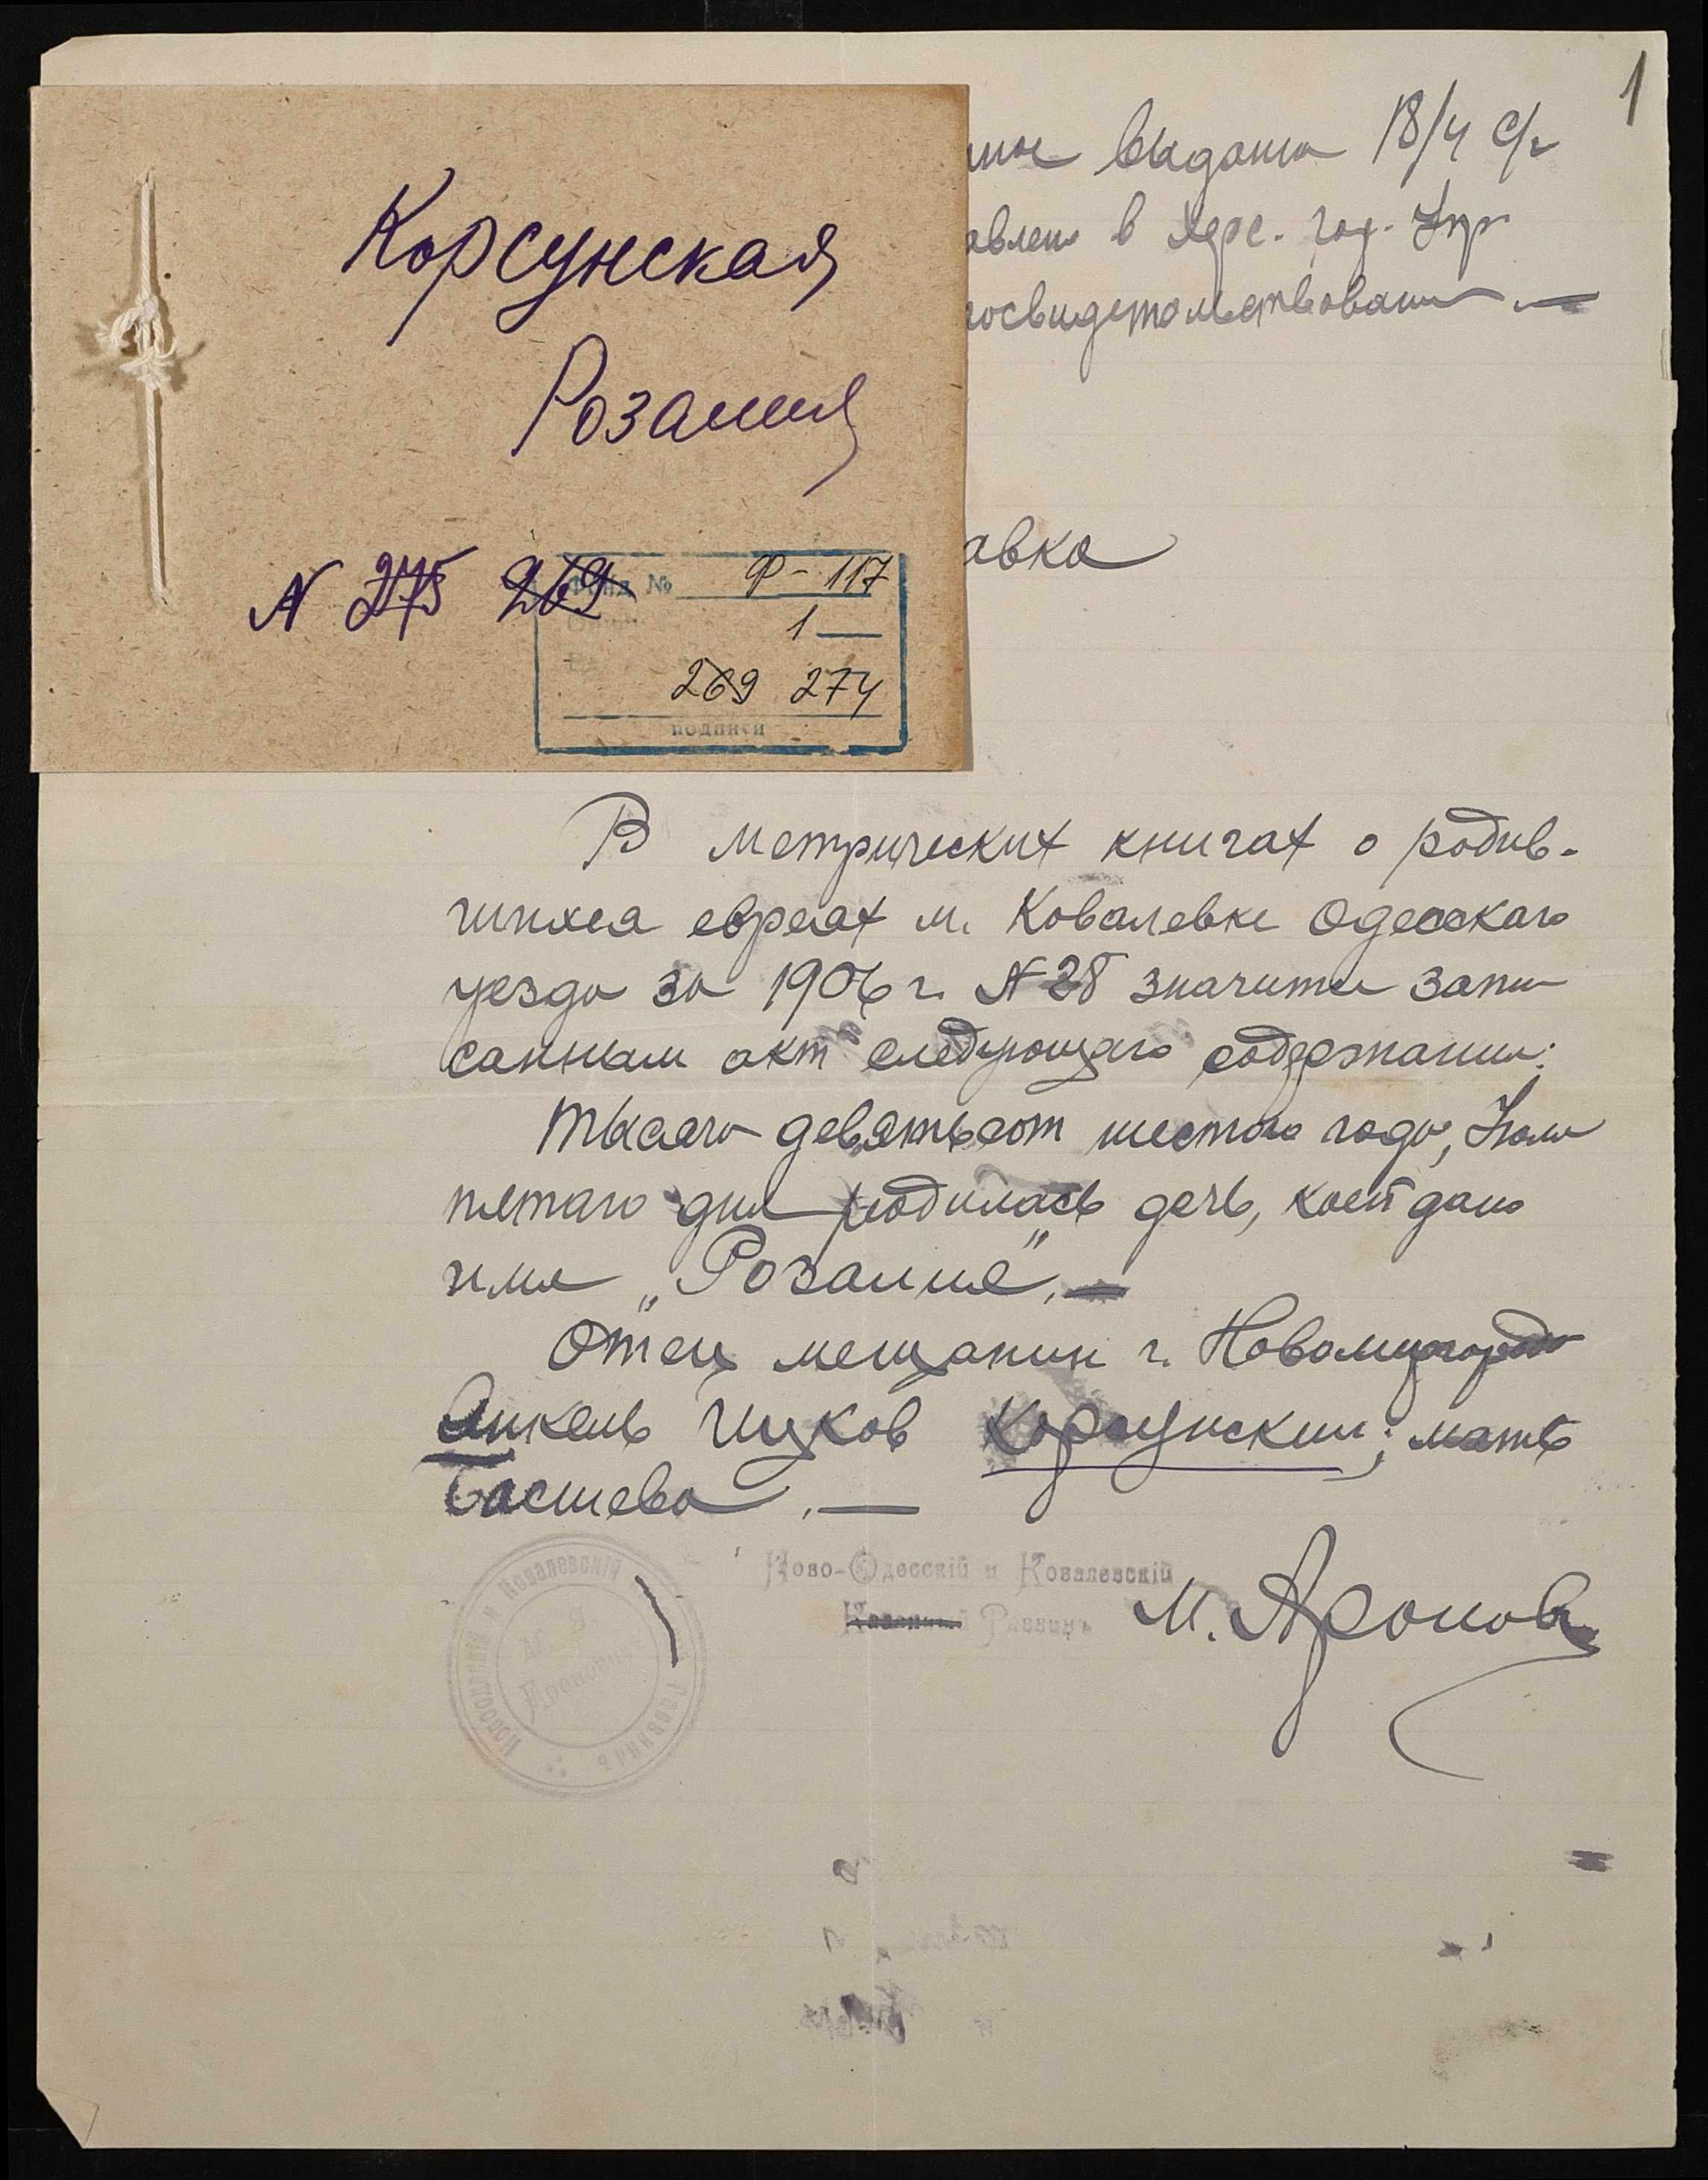 1
Корсунская
Розалия
N 275 269
Фонд № Ф-117
1 —
269 274
подписи
выдана 18/4 с/г
в Херс. гор. Упр
авка
В метрических книгах о родив-
шихся евреях м. Ковалевке Одесскаго
уезда за 1906 г. № 28 значится запи
санным акт следующаго содержания:
Тысяча девятьсот шестого года, Июля
пятаго дня родилась дочь, коей дано
имя „Розалия“. —
Отец мещанин г. Новомиргорода
Янкель Ицков Корсунский; мать
Басшева. —
Ново-Одесскій и Ковалевскій
Казенный Раввинъ
М. Аронов
Ковалевскій
Раввинъ